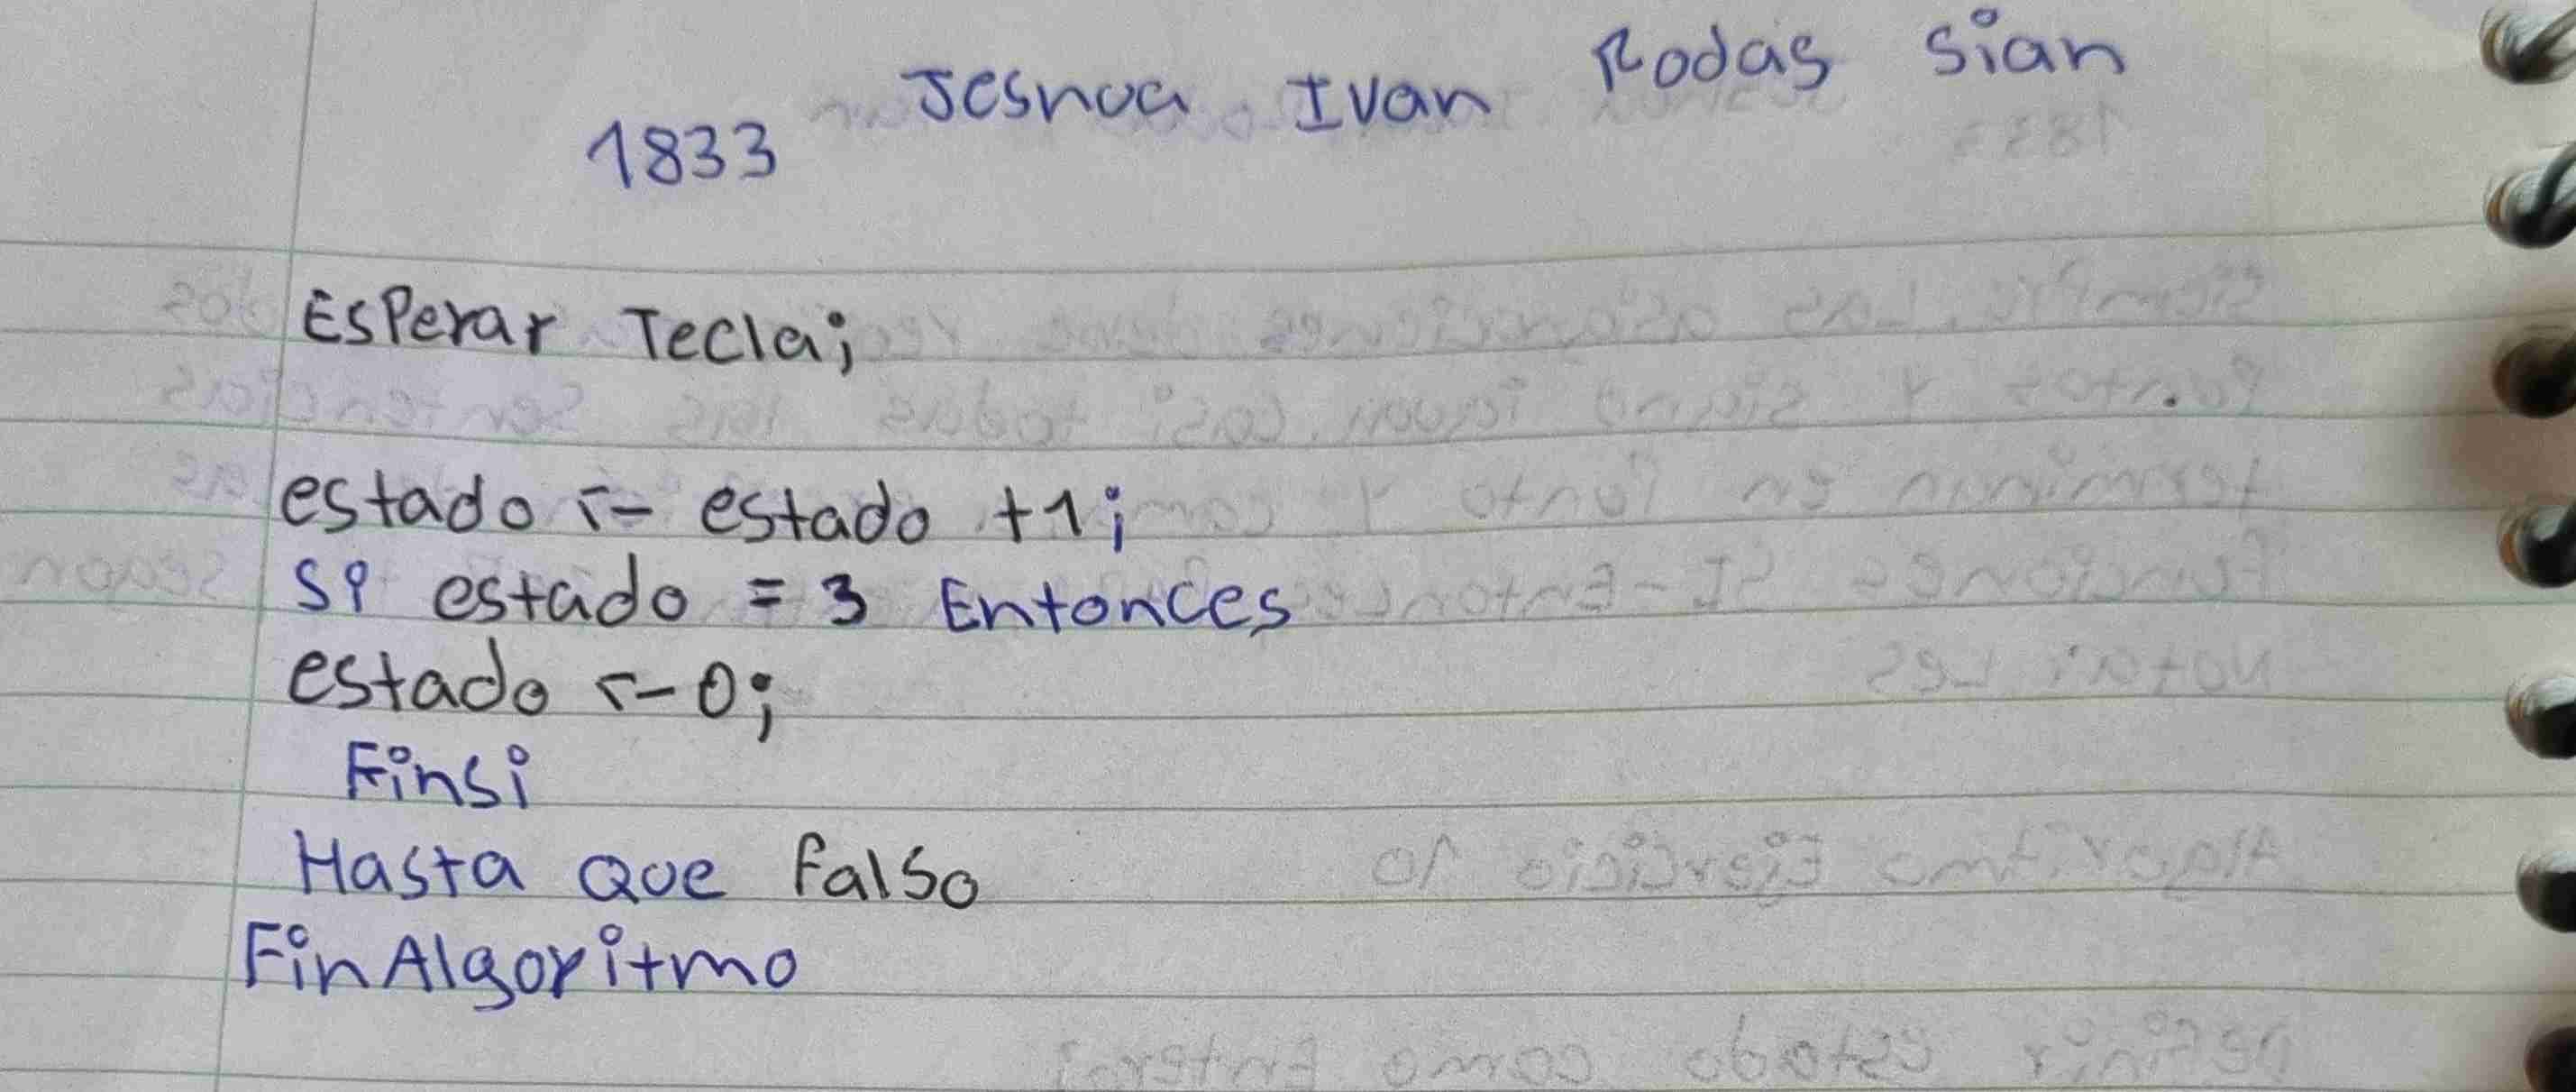 Jesnua Ivan Rodas Sian
1833
Esperar Tecla;
estado <- estado +1;
Si estado = 3 Entonces
estado <- 0;
Finsi
Hasta Que falso
FinAlgoritmo